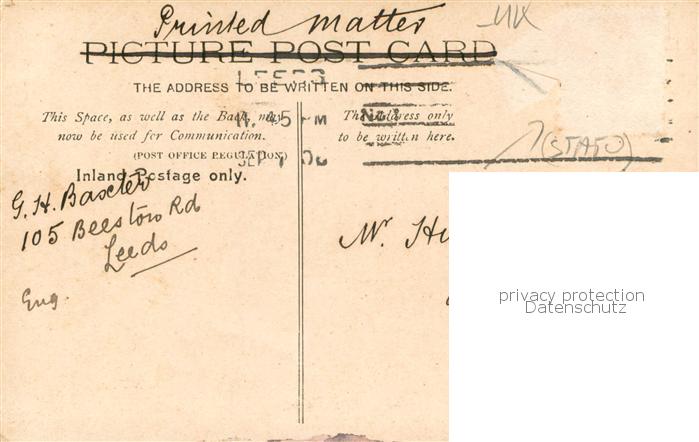 Printed matter
PICTURE POST CARD
THE ADDRESS TO BE WRITTEN ON THIS SIDE.
LEEDS
This Space, as well as the Back, may
now be used for Communication.
(POST OFFICE REGULATION)
Inland Postage only.
The Address only
to be written here.
45 PM
SEP 7 06
G. H. Baxter
105 Beeston Rd
Leeds
Eng.
Mr. Hu
privacy protection
Datenschutz